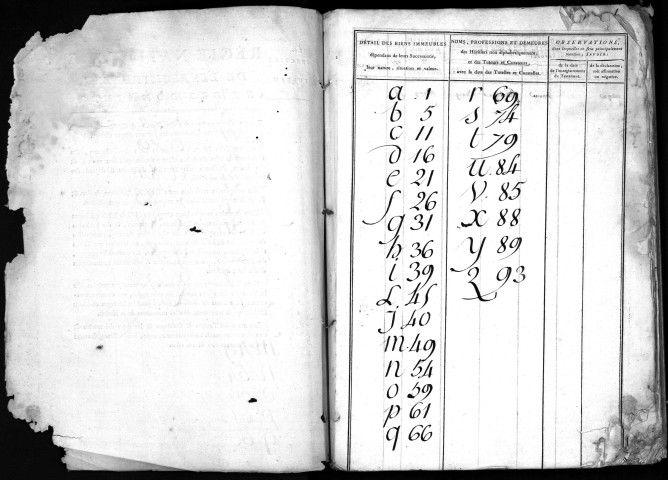 DÉTAIL DES BIENS IMMEUBLES
dépendans de leurs Successions,
leur nature, situation et valeur.
NOMS, PROFESSIONS ET DEMEURES
des Héritiers non alphabétiquement,
et des Tuteurs et Curateurs,
avec la date des Tutelles et Curatelles.
OBSERVATIONS,
dans lesquelles on fera principalement
mention, SAVOIR:
de la date
de l'enregistrement
du Testament.
de la date
de la déclaration,
soit affirmative
ou négative.
a 1
b 5
c 11
d 16
e 21
f 26
g 31
h 36
i 39
L 45
J 40
m 49
n 54
o 59
p 61
q 66
r 69
s 74
t 79
u 84
v. 85
x 88
y 89
z 93